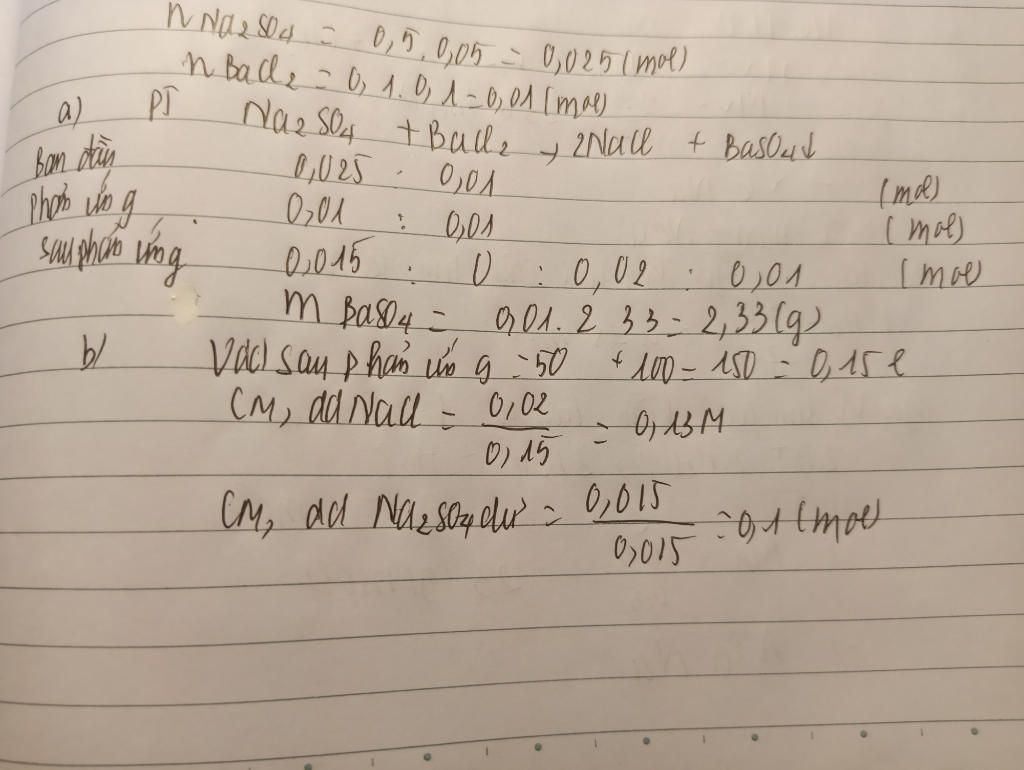 n Na2SO4 = 0,5 . 0,05 = 0,025 (mol)
n BaCl2 = 0,1 . 0,1 = 0,01 (mol)
a) PT Na2SO4 + BaCl2 → 2NaCl + BaSO4↓
Ban đầu 0,025 : 0,01 (mol)
phản ứng 0,01 : 0,01 (mol)
sau phản ứng 0,015 : 0 : 0,02 : 0,01 (mol)
m BaSO4 = 0,01 . 233 = 2,33 (g)
b) Vdd sau phản ứng = 50 + 100 = 150 = 0,15 l
CM, dd NaCl = 0,02 / 0,15 = 0,13 M
CM, dd Na2SO4 dư = 0,015 / 0,015 = 0,1 (mol